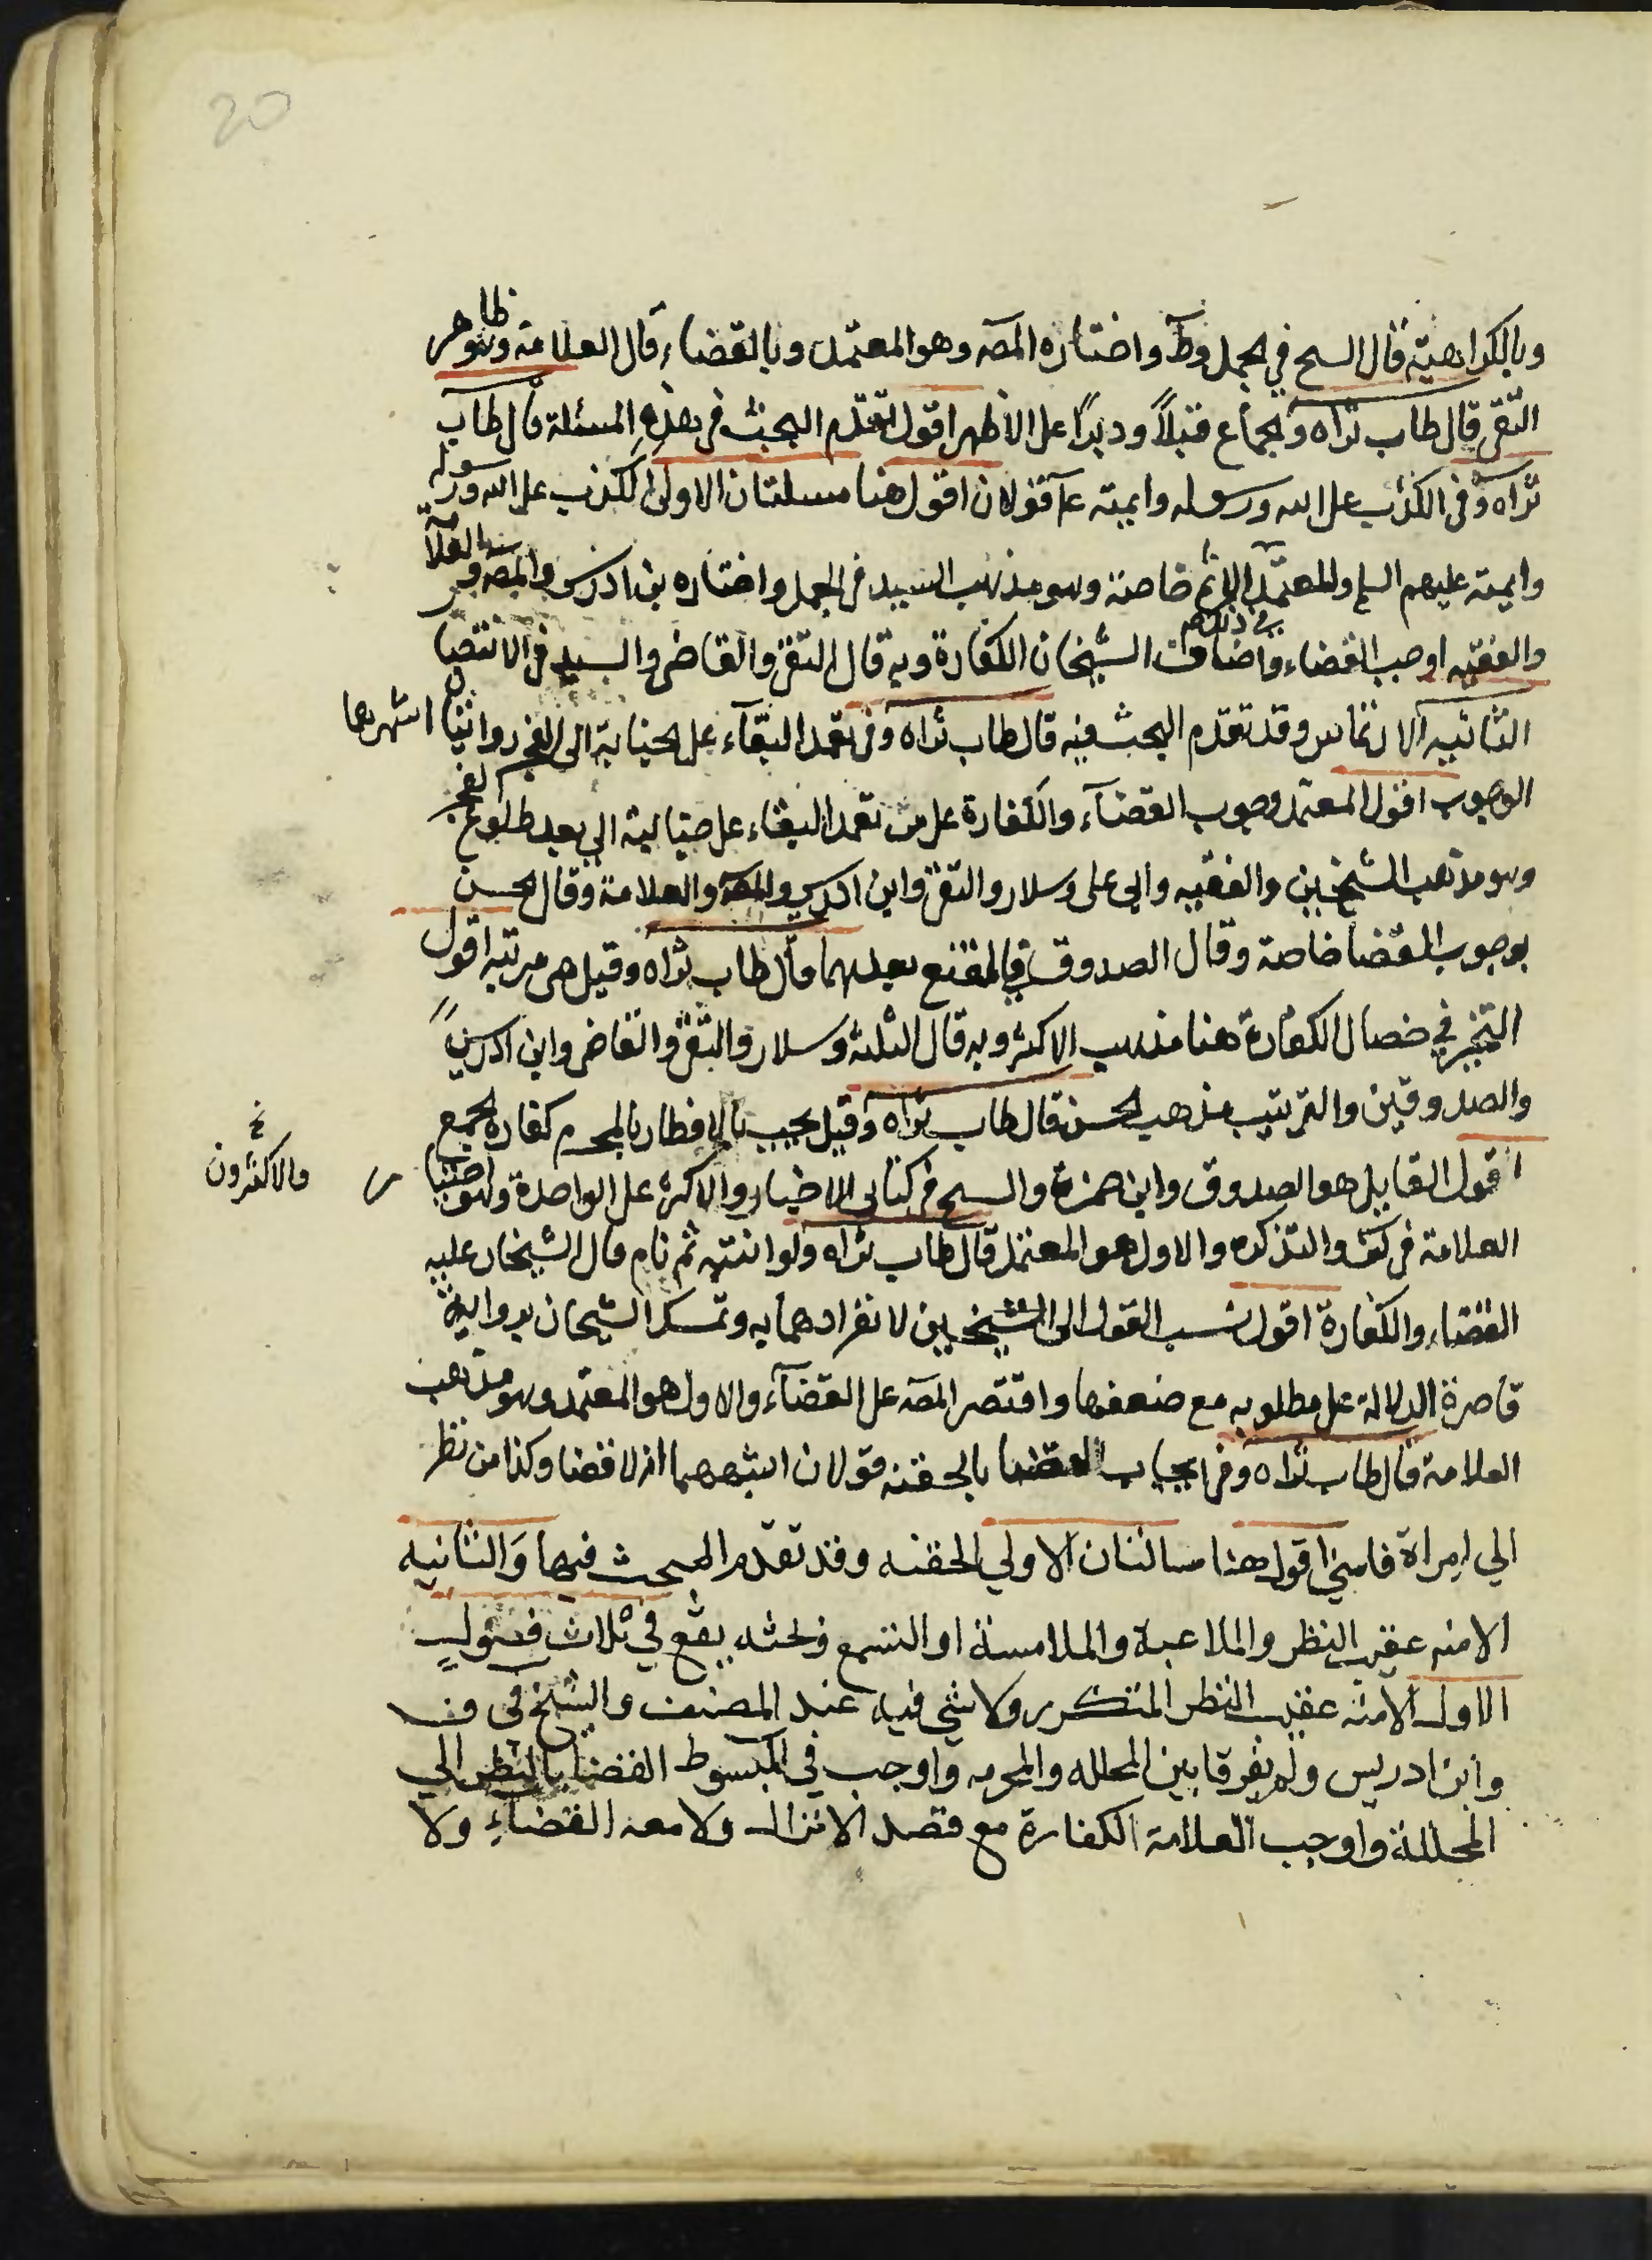 20
وبالكراهية قال الشيخ في الجمل وط واختاره المصه وهو المعتمد وبالقضاء قال العلامة وهو ظاهر
التقى قال طاب ثراه والجماع قبلاً ودبراً على الاظهر اقول تقدم البحث في هذه المسئلة قال طاب
ثراه وفى الكذب على الله ورسوله وايمته ع قولان اقول هنا مسلتان الاولى الكذب على الله ورسوله
وايمته عليهم السلم والمعتمد الاثم خاصة وهو مذهب السيد فى الجمل واختاره بن ادريس والمصه والعلامة
والفقيه اوجب القضاء واضاف الشيخان الكفارة وبه قال التقى والقاضى والسيد فى الانتصار
الثانيه الارتماس وقد تقدم البحث فيه قال طاب ثراه وفى تعمد البقآء على الجنابة الى الفجر روايتان اشهرها
الوجوب اقول المعتمد وجوب القضآء والكفارة على من تعمد البقاء على جنابته الى بعد طلوع الفجر
وهو مذهب الشيخين والفقيه وابى على وسلار والتقى وابن ادريس والمصه والعلامة وقال الحسن
بوجوب القضا خاصة وقال الصدوق في المقنع بعدمهما قال طاب ثراه وقيل هى مرتبه اقول
التخيير في خصال الكفارة هنا مذهب الاكثر وبه قال الثلثة وسلار والتقى والقاضى وابن ادريس
والصدوقين والترتيب مذهب الحسن قال طاب ثراه وقيل يجب بالافطار بالمحرم كفارة الجمع
اقول القايل هو الصدوق وابن حمزة والشيخ فى كتابى الاخبار والاكثر على الواحدة وهو اختيار
والاكثرون خ
العلامة فى كتبه والتذكره والاول هو المعتمد قال طاب ثراه ولو انتبه ثم نام قال الشيخان عليه
القضاء والكفارة اقول نسب القول الى الشيخين لانفرادهما به وتمسك الشيخان برواية
قاصرة الدلالة على مطلوبه مع ضعفها واقتصر المصه على القضآء والاول هو المعتمد وهو مذهب
العلامة قال طاب ثراه وفى ايجاب القضا بالحقنه قولان اشبههما انه لا قضا وكذا من نظر
الي امراة فامنى اقول هنا مسالتان الاولي الحقنه وقد تقدم البحث فيها والثانيه
الامنه عقيب النظر والملاعبة والملامسة او التسمع وبحثه يقع في ثلاث فصول
الاول الامنه عقيب النظر المتكرر ولا شي فيه عند المصنف والشيخ في ف
وابن ادريس ولم يفرقا بين المحلله والمحرمه واوجب في المبسوط القضا بالنظر الي
المحللة واوجب العلامة الكفارة مع قصد الانزال ولا معه القضاء ولا